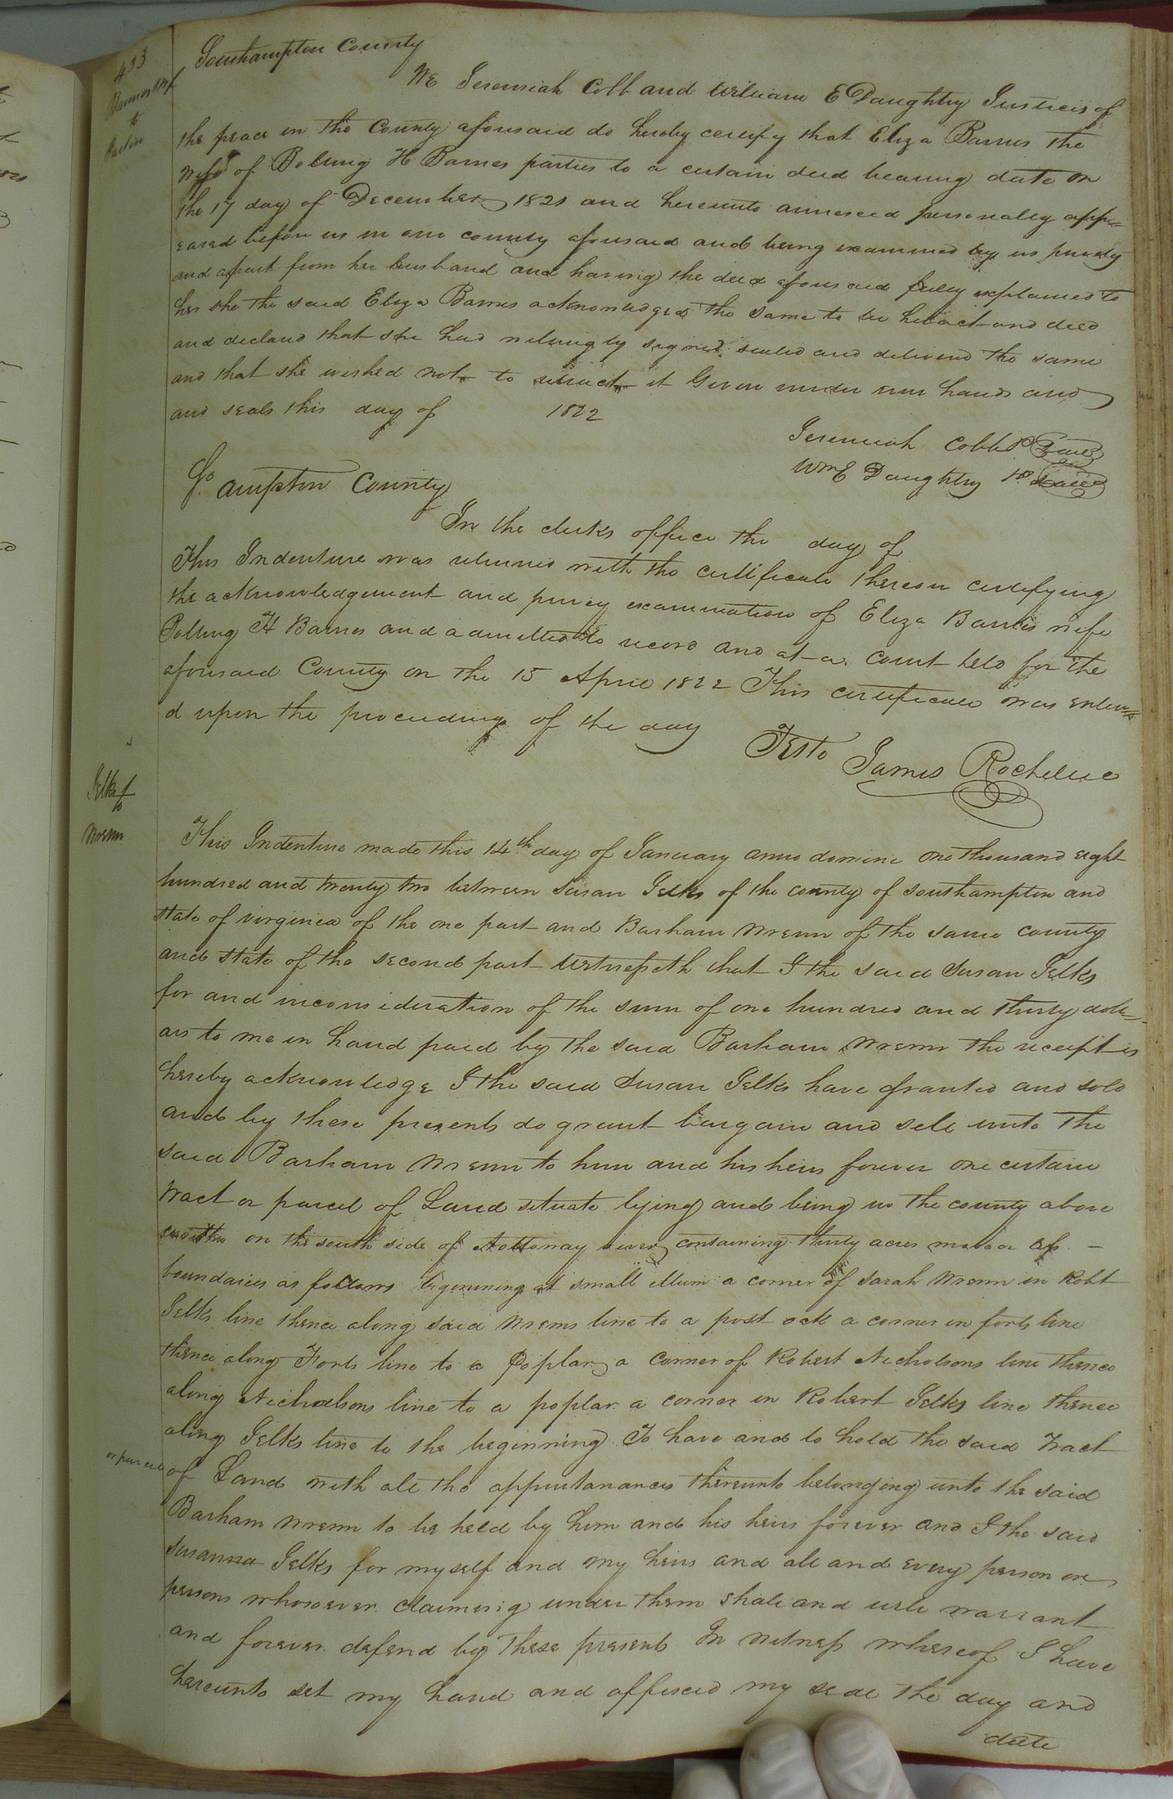 433
Barnes & wf
to
Southampton County
We Jeremiah Cobb and William E Daughtry Justices of
the peace in the County aforesaid do hereby certify that Eliza Barnes the
wife of Bolling H Barnes parties to a certain deed bearing date on
the 17 day of December 1821 and hereunto annexed personally appe-
eared before us in our county aforesaid and being examined by us privily
and apart from her husband and having the deed aforesaid fully explained to
her she the said Eliza Barnes acknowledged the same to be her act and deed
and declared that she had willingly signed sealed and delivered the same
and that she wished not to retract it Given under our hands and
and seals this day of 1822
Jeremiah Cobb Seal
Wm E Daughtry Seal
So ampton County
In the clerks office the day of
This Indenture was returned with the certificate thereon certifying
the acknowledgement and privy examination of Eliza Barnes wife
Bolling H Barnes and admitted to record and at a court held for the
aforesaid County on the 15 April 1822 This certificate was entere
d upon the proceedings of the day
Teste James Rochelle
Jelks
to
Wrenn
This Indenture made this 14th day of January anno domine one thousand eight
hundred and twenty two between Susan Jelks of the county of Southampton and
state of virginia of the one part and Barham Wrenn of the same county
and state of the second part Witnesseth that I the said Susan Jelks
for and inconsideration of the sum of one hundred and thirty doll-
ars to me in hand paid by the said Barham Wrenn the receipt is
hereby acknowledge I the said Susan Jelks have granted and sold
and by these presents do grant bargain and sell unto the
said Barham Wrenn to him and his heirs forever one certain
tract or parcel of Land situate lying and being in the county above
on the south side of Nottoway river containing thirty acres more or less
boundaries as follows begenning at small ellum a corner of Sarah Wrenn in Robt
Jelks line thence along said Wrenns line to a post oak a corner in forts line
thence along Forts line to a Poplar a corner of Robert Nicholsons line thence
along Nicholsons line to a poplar a corner in Robert Jelks line thence
along Jelks line to the beginning To have and to hold the said Tract
or parcel
of Land with all the appurtanances thereunto belonging unto the said
Barham Wrenn to be held by him and his heirs forever and I the said
Susanna Jelks for myself and my heirs and all and every person or
persons whosoever claiming under them shall and will warrant
and forever defend by these presents In witness whereof I have
hereunto set my hand and affixed my seal the day and
date